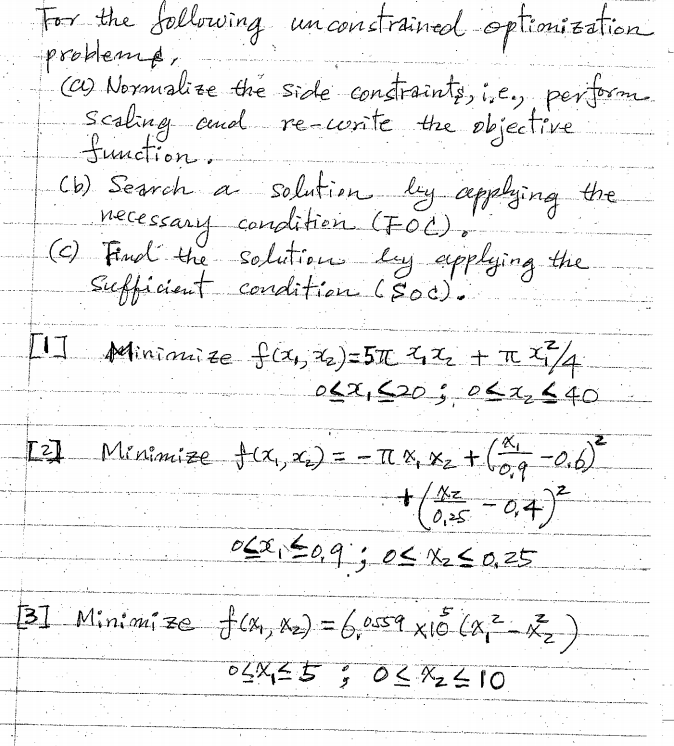 For the following unconstrained optimization
problems,
(a) Normalize the side constraints, i.e., perform
scaling and re-write the objective
function.
(b) Search a solution by applying the
necessary condition (FOC).
(c) Find the solution by applying the
sufficient condition (SOC).
[1] Minimize f(x₁, x₂)=5π x₁x₂ + π x₁²/4
0≤x₁≤20 ; 0≤x₂≤40
[2] Minimize f(x₁, x₂) = - π x₁ x₂ + (x₁/0.9 - 0.6)²
+ (x₂/0.25 - 0.4)²
0≤x₁≤0.9 ; 0≤ x₂≤ 0.25
[3] Minimize f(x₁, x₂) = 6.0559 x10⁵ (x₁² - x₂²)
0≤x₁≤5 ; 0≤ x₂≤10